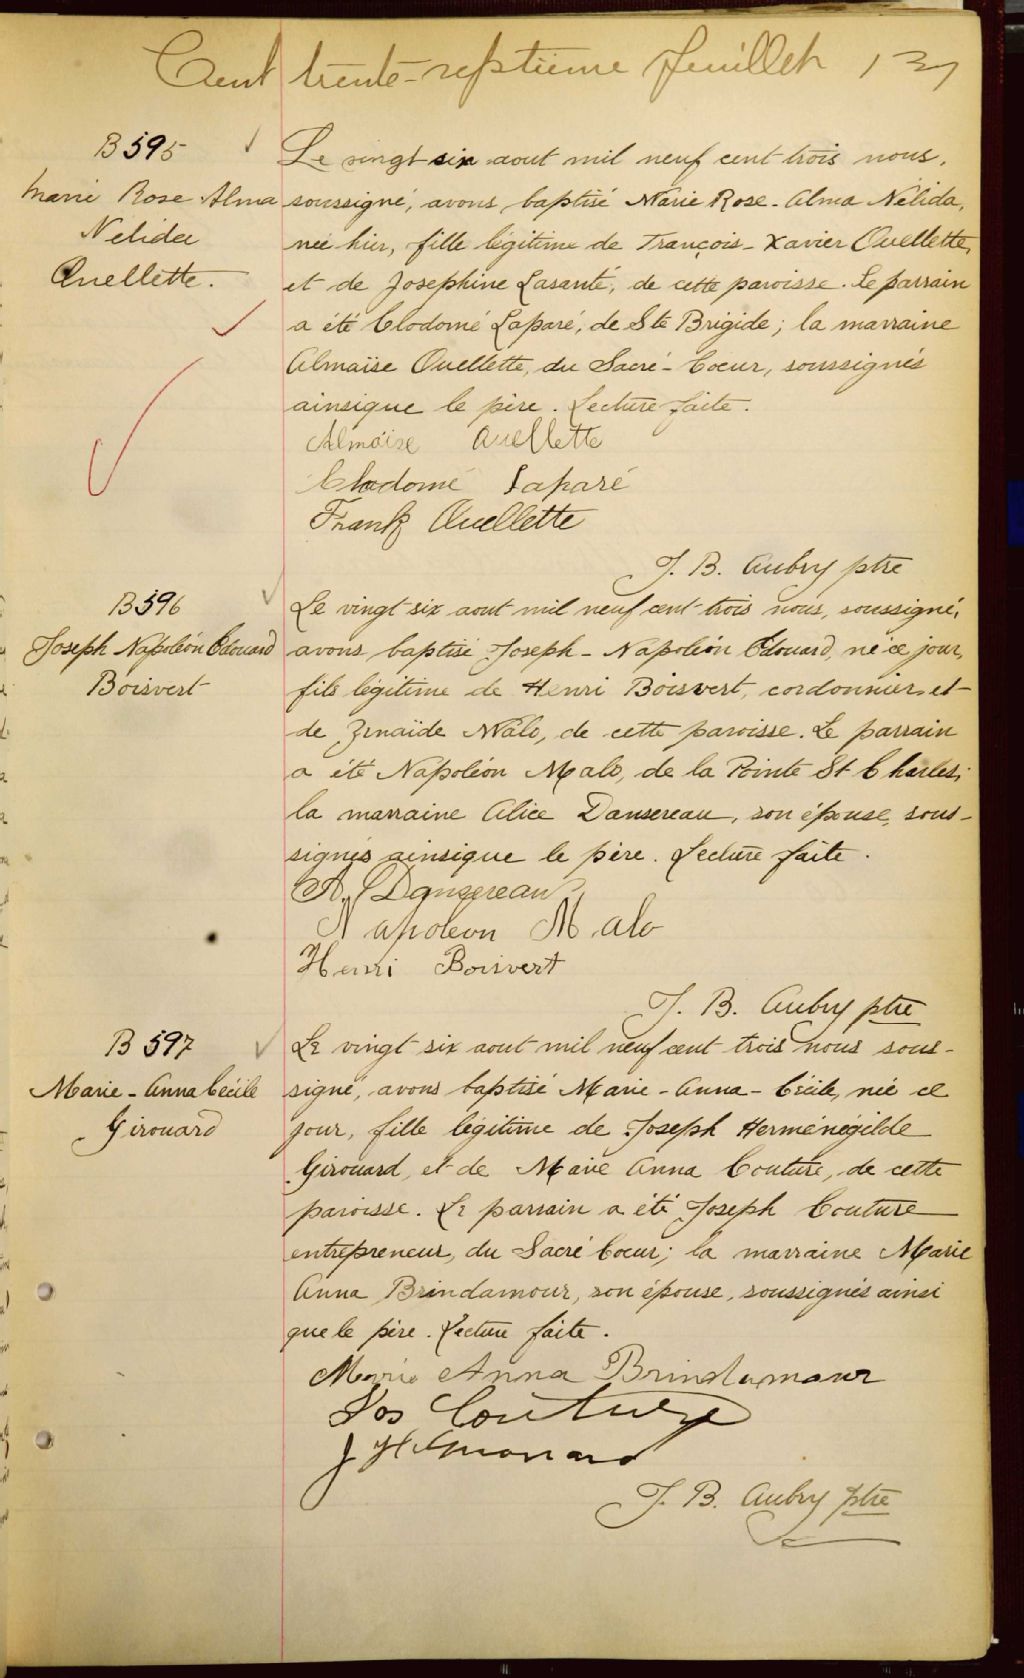 Cent trente-septième feuillet 137
B 595
Marie Rose Alma
Nélida
Ouellette.
Le vingt six aout mil neuf cent trois nous,
soussigné, avons baptisé Marie Rose-Alma Nélida,
née hier, fille légitime de François-Xavier Ouellette,
et de Josephine Lasanté, de cette paroisse. Le parrain
a été Clodomé Laparé, de Ste Brigide; la marraine
Almaïse Ouellette, du Sacré-Coeur, soussignés
ainsique le père. Lecture faite.
Almaïse Ouellette
Clodomé Laparé
Frank Ouellette
J. B. Aubry ptre
B 596
Joseph Napoléon Édouard
Boisvert
Le vingt six aout mil neuf cent trois nous, soussigné,
avons baptisé Joseph-Napoléon Édouard, né ce jour,
fils légitime de Henri Boisvert, cordonnier et
de Zénaïde Malo, de cette paroisse. Le parrain
a été Napoléon Malo, de la Pointe St Charles;
la marraine Alice Dansereau, son épouse, sous-
signés ainsique le père. Lecture faite.
A. Dansereau
Napoleon Malo
Henri Boisvert
J. B. Aubry ptre
B 597
Marie-Anna Cécile
Girouard
Le vingt six aout mil neuf cent trois nous sous-
signé, avons baptisé Marie-Anna-Cécile, née ce
jour, fille légitime de Joseph Herménégilde
Girouard, et de Marie Anna Couture, de cette
paroisse. Le parrain a été Joseph Couture
entrepreneur, du Sacré Coeur; la marraine Marie
Anna Brindamour, son épouse, soussignés ainsi
que le père. Lecture faite.
Marie Anna Brindamour
Jos Couture
J H Girouard
J. B. Aubry ptre